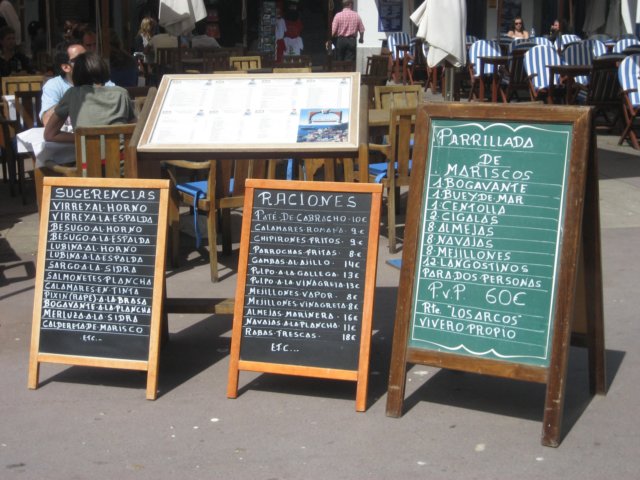 SUGERENCIAS
VIRREY AL HORNO
VIRREY A LA ESPALDA
BESUGO AL HORNO
BESUGO A LA ESPALDA
LUBINA AL HORNO
LUBINA A LA ESPALDA
SARGO A LA SIDRA
SALMONETES PLANCHA
CALAMARES EN TINTA
PIXIN (RAPE) A LA BRASA
BOGAVANTE A LA PLANCHA
MERLUZA A LA SIDRA
CALDERETA DE MARISCO
ETC...
RACIONES
PATÉ DE CABRACHO 10€
CALAMARES ROMANA 9€
CHIPIRONES FRITOS 9€
PARROCHAS FRITAS 8€
GAMBAS AL AJILLO 14€
PULPO A LA GALLEGA 13€
PULPO A LA VINAGRETA 13€
MEJILLONES VAPOR 8€
MEJILLONES VINAGRETA 8€
ALMEJAS MARINERA 16€
NAVAJAS A LA PLANCHA 11€
RABAS FRESCAS 18€
ETC...
PARRILLADA
DE
MARISCOS
1 BOGAVANTE
1 BUEY DE MAR
1 CENTOLLA
2 CIGALAS
8 ALMEJAS
8 NAVAJAS
8 MEJILLONES
12 LANGOSTINOS
PARA DOS PERSONAS
P.V.P 60€
Rte. "LOS ARCOS"
VIVERO PROPIO